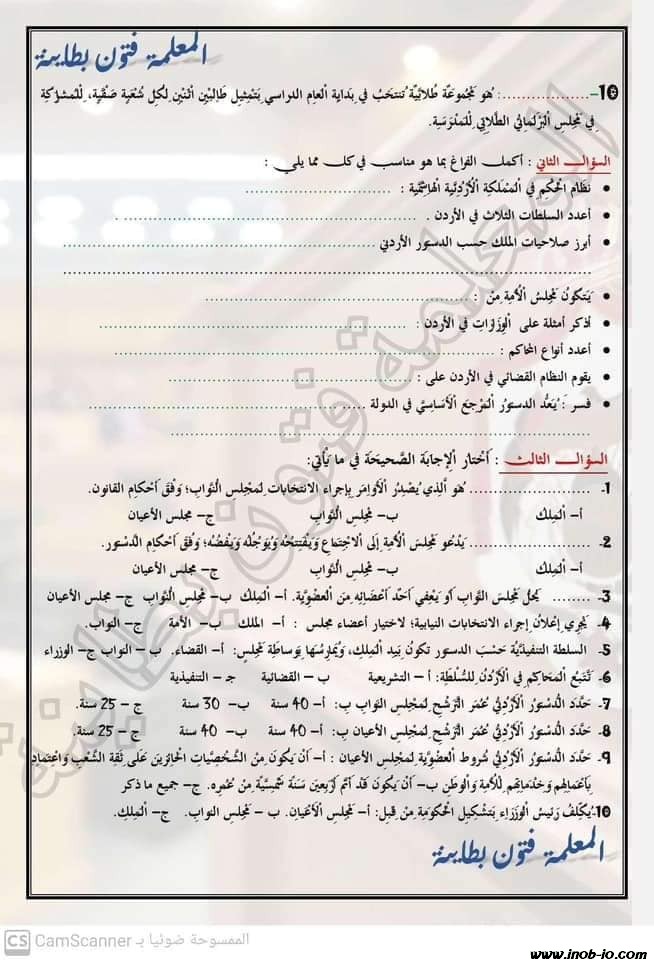 المعلمة فتون بطاينة
10-..................: هُوَ مَجْمُوعَة طُلابِيَّة تُنتَخَبُ في بِدَاية العام الدراسي بتمثيل طَالِبَيْنِ اثْنَيْنِ لِكل شُعْبَةٍ صَفّيَة، لِلْمُشَارَكَةِ
في مَجْلِس البَرْلَمَانِيِّ الطُّلَابِيِّ لِلْمَدْرَسَةِ.
السؤال الثاني : أكمل الفراغ بما هو مناسب في كل مما يلي :
• نظَام الحُكْمِ فِي المَمْلَكَةِ الأُرْدُنِّيَّةِ الْهَاشِمِيَّة : ..............................
• أعدد السلطات الثلاث في الأردن . .............................. .
• أبرز صلاحيات الملك حسب الدستور الأردني ..............................
..............................
• يَتَكَوّنُ مَجْلِسُ الْأُمَّةِ مِنْ : ..............................
• أذكر أمثلة على الْوِزَارَاتِ في الأردن : ..............................
• أعدد أنواع المحاكم : ..............................
• يقوم النظام القضائي في الأردن على : ..............................
• فسر : يُعَدُّ الدستورُ الْمَرْجَعَ الأَسَاسِيَّ في الدولة ..............................
..............................
السؤال الثالث : أَخْتَار الإِجَابَة الصَّحِيحَة في مَا يَأْتِي:
1. .................. هُو الَّذِي يُصْدِرُ الْأَوَامِرَ بِإجراء الانتخابات لمَجْلِس النُّوَّاب؛ وَفْقَ أَحْكَامِ القانون.
أ- الْمَلِك ب- مَجْلِس النُّوَّاب ج- مجلس الأعيان
2. .................. يَدْعُو مَجْلِسَ الأُمَّة إِلَى الاجْتِمَاعِ وَيَفْتَتِحُهُ وَيُؤَجِّلُهُ وَيَفُضُّهُ؛ وَفْقَ أَحْكَامِ الدَّسْتُور.
أ- الْمَلِك ب- مَجْلِس النُّوَّاب ج- مجلس الأعيان
3. ........ يَحِلُّ مَجْلِسَ النُّوَّاب أَوْ يَعْفِي أَحَدَ أَعْضَائِهِ مِنَ العُضْوِيَّة. أ- الْمَلِك ب- مَجْلِس النُّوَّاب ج- مجلس الأعيان
4. يَجْرِي إعْلَان إجراء الانتخابات النيابية؛ لاختيار أعضاء مجلس : أ- الملك ب- الأمة ج- النواب.
5. السلطة التنفيذيَّة حَسَبَ الدستور تكُونُ بيد الْمَلِك، وَيُمَارِسُهَا بِوَسَاطَةِ مَجْلِس: أ- القضاء. ب- النواب ج- الوزراء
6. تَتْبَعُ المَحَاكِم في الأُرْدُنّ للسُّلْطَة: أ- التشريعية ب- القضائية جـ- التنفيذية
7. حَدَّدَ الدُّسْتُورُ الأُرْدُنِّيُّ عُمَر التَّرَشُّحِ لِمَجْلِس النواب بـ: أ- 40 سنة ب- 30 سنة ج- 25 سنة.
8. حَدَّدَ الدُّسْتُورُ الأُرْدُنِّيُّ عُمَر التَّرَشُّحِ لِمَجْلِس الأعيان بـ: أ- 40 سنة ب- 40 سنة ج- 25 سنة.
9. حَدَّدَ الدُّسْتُورُ الأُرْدُنِّيُّ شُروط العُضْوِيَّة لِمَجْلِس الأعيان : أ- أَنْ يَكُونَ مِنَ الشَّخْصِيَّاتِ الْحَائِزِينَ عَلَى ثِقَةِ الشَّعْبِ وَاعْتِمَادِهِ
بِأَعْمَالِهِم وَخَدَمَاتِهِمْ لِلأُمَّةِ وَالْوَطَنِ ب- أَنْ يَكُونَ قَدْ أَتَمَّ أَرْبَعِينَ سَنَةً شَمْسِيَّة مِنْ عُمُرِهِ. ج- جميع ما ذكر
10. يُكَلِّفُ رَئِيسُ الْوُزَرَاءِ بِتَشْكِيلِ الْحُكُومَةِ مِنْ قِبَلِ: أ- مَجْلِس الأَعْيَان. ب - مَجْلِس النواب. ج- الْمَلِك.
المعلمة فتون بطاينة
المعلمة فتون بطاينة
CS CamScanner الممسوحة ضوئيا بـ
www.inob-jo.com